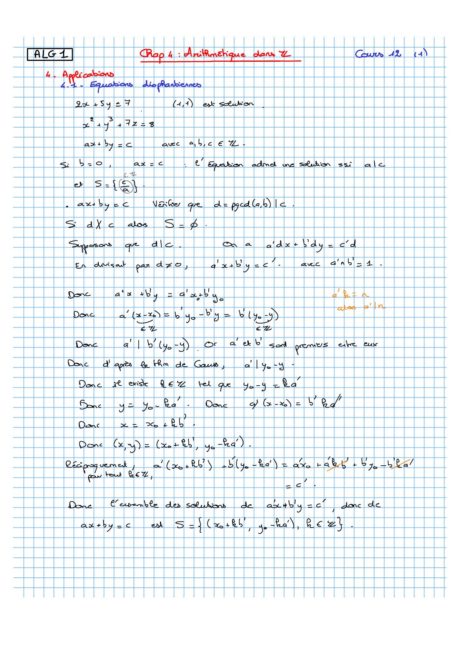 ALG1 Chap 4 : Arithmétique dans ℤ Cours 12 (1)
4. Applications
4.1 - Equations diophantiennes
2x + 5y = 7 (1,1) est solution.
x² + y³ + 7z = 8
ax + by = c avec a, b, c ∈ ℤ.
Si b = 0, ax = c : l'équation admet une solution ssi a|c
et S = {c/a}. ∈ ℤ
• ax + by = c Vérifier que d = pgcd(a,b) | c.
Si d∤c alors S = ∅.
Supposons que d|c. On a a'dx + b'dy = c'd
En divisant par d ≠ 0, a'x + b'y = c'. avec a' ∧ b' = 1.
Donc a'x + b'y = a'x₀ + b'y₀ a'k = n
Donc a'(x - x₀) = b'y₀ - b'y = b'(y₀ - y) alors a'|n
∈ ℤ ∈ ℤ
Donc a' | b'(y₀ - y) Or a' et b' sont premiers entre eux
Donc d'après le thm de Gauss, a' | y₀ - y.
Donc il existe k ∈ ℤ tel que y₀ - y = ka'
Donc y = y₀ - ka'. Donc a'(x - x₀) = b'ka'
Donc x = x₀ + kb'.
Donc (x, y) = (x₀ + kb', y₀ - ka').
Réciproquement, a'(x₀ + kb') + b'(y₀ - ka') = a'x₀ + a'kb' + b'y₀ - b'ka'
pour tout k ∈ ℤ, = c'.
Donc l'ensemble des solutions de a'x + b'y = c', donc de
ax + by = c est S = {(x₀ + kb', y₀ - ka'), k ∈ ℤ}.